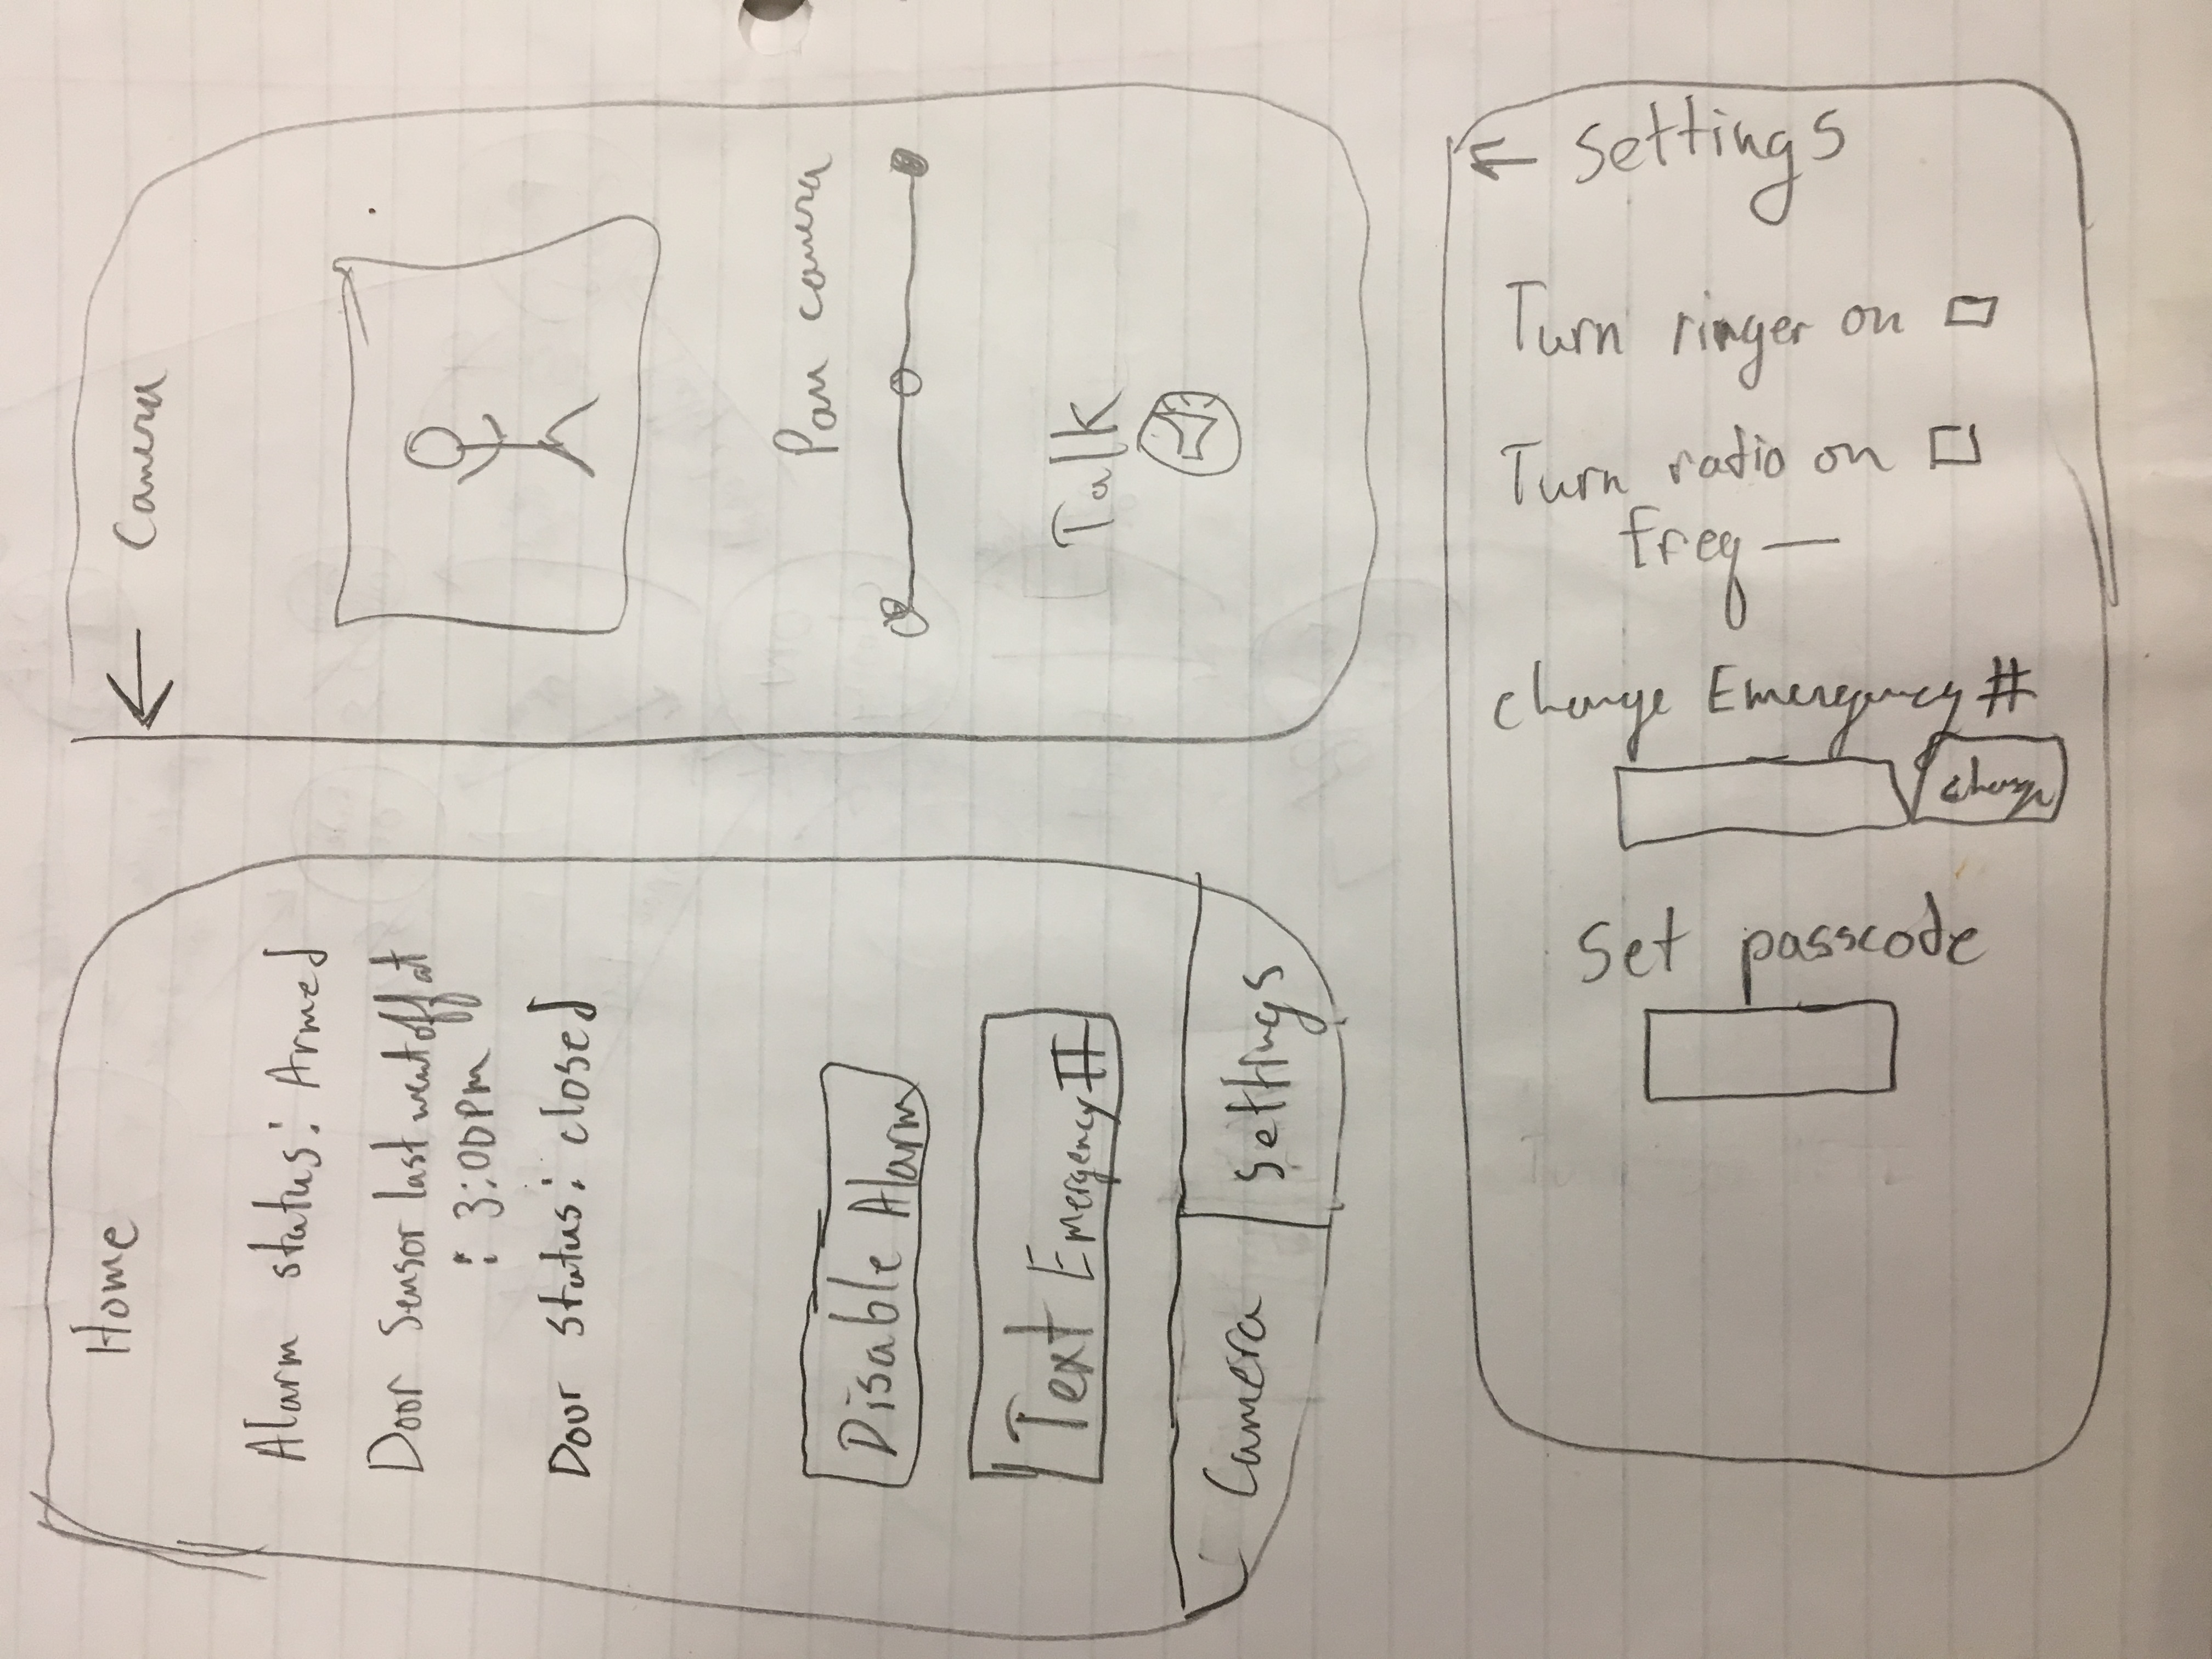 Home
Alarm status: Armed
Door Sensor last went off at
: 3:00pm
Door status: closed
Disable Alarm
Text Emergency #
Camera
Settings
← Camera
Pan camera
Talk
← Settings
Turn ringer on
Turn radio on
freq —
Change Emergency #
change
Set passcode